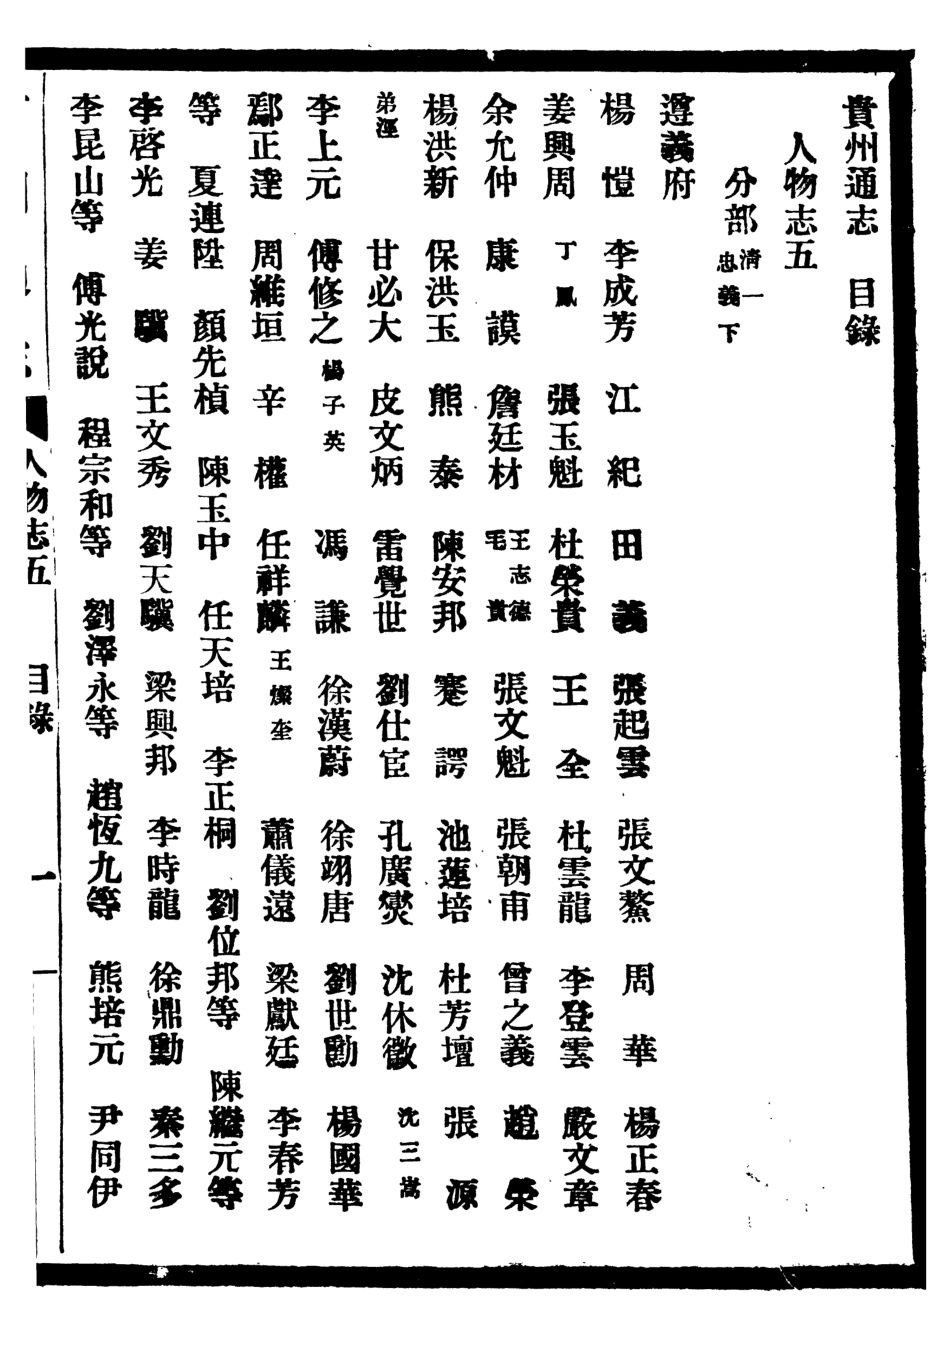 貴州通志　目錄
人物志五
分部　清一　忠義下
遵義府
楊　愷　李成芳　江　紀　田　義　張起雲　張文鰲　周　華　楊正春
姜興周　丁鳳　張玉魁　杜榮貴　王　全　杜雲龍　李登雲　嚴文章
余允仲　康　謨　詹廷材　王志德　毛貴　張文魁　張朝甫　曾之義　趙　榮
楊洪新　保洪玉　熊　泰　陳安邦　蹇　諤　池蓮培　杜芳壇　張　源
弟溼　甘必大　皮文炳　雷覺世　劉仕宦　孔廣爕　沈休徵　沈三嵩
李上元　傅修之　楊子英　馮　謙　徐漢蔚　徐翊唐　劉世勛　楊國華
鄢正逵　周維垣　辛　權　任祥麟　王燦奎　蕭儀遠　梁獻廷　李春芳
等　夏連陞　顏先楨　陳玉中　任天培　李正桐　劉位邦等　陳繼元等
李啓光　姜　驥　王文秀　劉天驥　梁興邦　李時龍　徐鼎勳　秦三多
李昆山等　傅光說　程宗和等　劉澤永等　趙恆九等　熊培元　尹同伊
人物志五　目錄　一